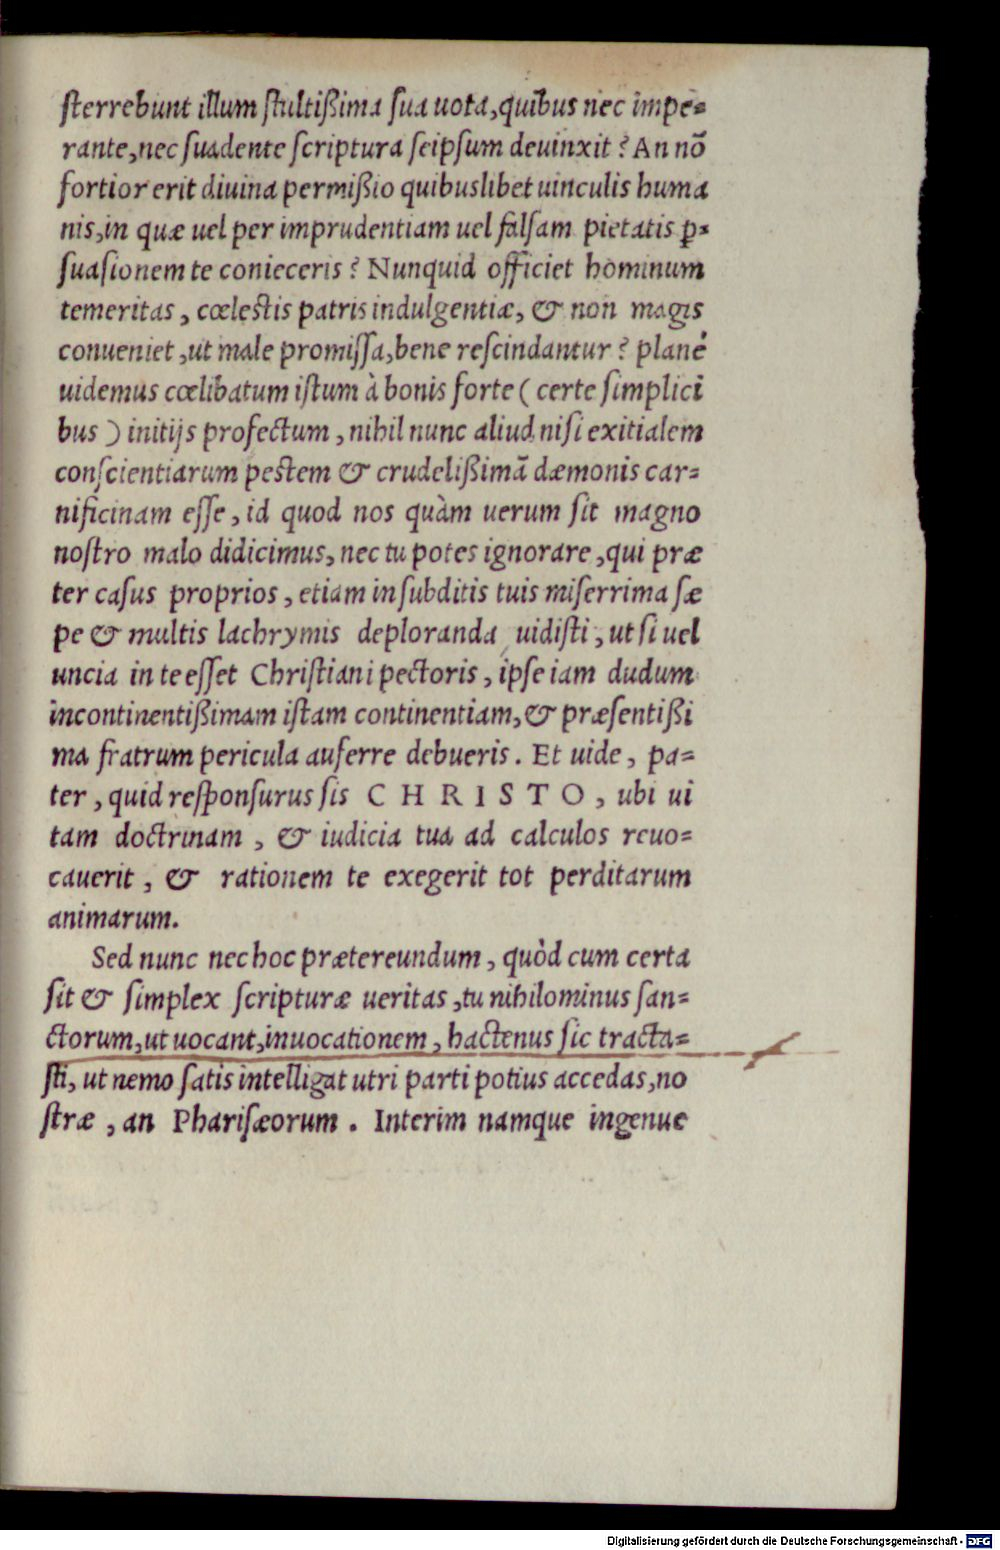 ſterrebunt illum ſtultißima ſua uota, quibus nec impe=
rante, nec ſuadente ſcriptura ſeipſum deuinxit? An nõ
fortior erit diuina permißio quibuslibet uinculis huma
nis, in quæ uel per imprudentiam uel falſam pietatis ꝑ=
ſuaſionem te conieceris? Nunquid officiet hominum
temeritas, cœleſtis patris indulgentiæ, & non magis
conueniet, ut male promiſſa, bene reſcindantur? planè
uidemus cœlibatum iſtum à bonis forte (certe ſimplici
bus) initijs profectum, nihil nunc aliud niſi exitialem
conſcientiarum peſtem & crudelißimã dæmonis car=
nificinam eſſe, id quod nos quàm uerum ſit magno
noſtro malo didicimus, nec tu potes ignorare, qui præ
ter caſus proprios, etiam in ſubditis tuis miſerrima ſæ
pe & multis lachrymis deploranda uidiſti, ut ſi uel
uncia in te eſſet Chriſtiani pectoris, ipſe iam dudum
incontinentißimam iſtam continentiam, & præſentißi
ma fratrum pericula auferre debueris. Et uide, pa=
ter, quid reſponſurus ſis C H R I S T O, ubi ui
tam doctrinam, & iudicia tua ad calculos reuo=
cauerit, & rationem te exegerit tot perditarum
animarum.
Sed nunc nec hoc prætereundum, quòd cum certa
ſit & ſimplex ſcripturæ ueritas, tu nihilominus ſan=
ctorum, ut uocant, inuocationem, hactenus ſic tracta=
ſti, ut nemo ſatis intelligat utri parti potius accedas, no
ſtræ, an Phariſæorum. Interim namque ingenue
Digitalisierung gefördert durch die Deutsche Forschungsgemeinschaft - DFG